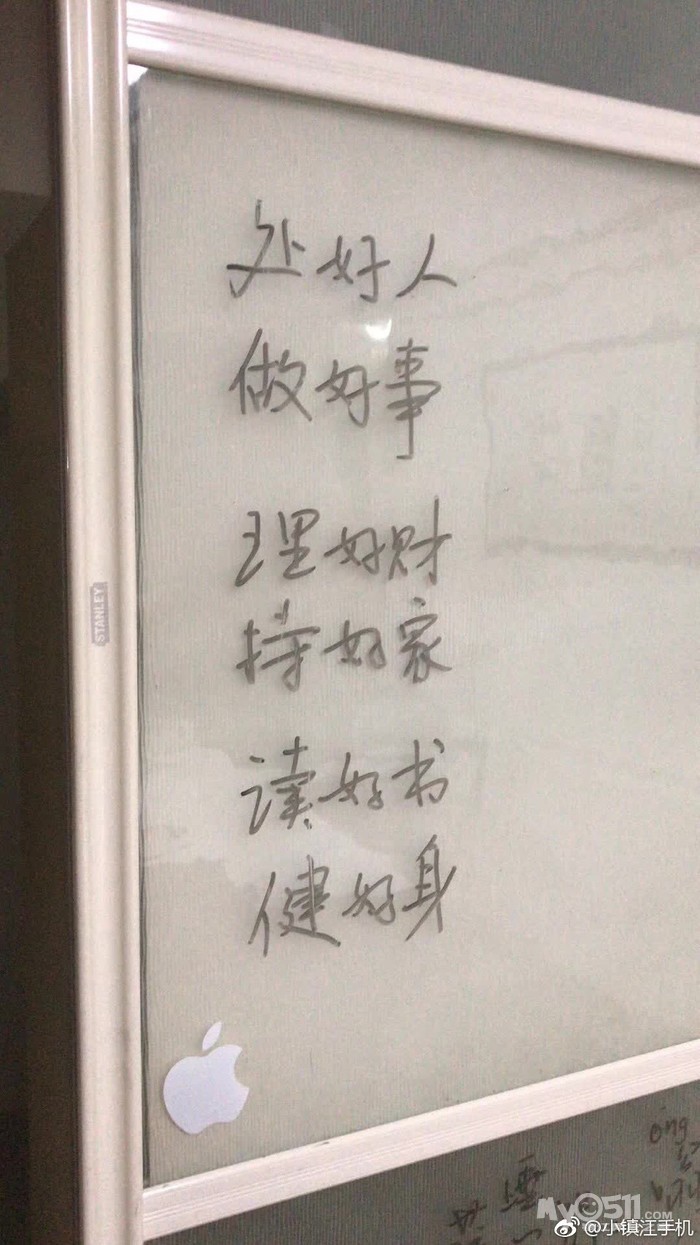 处好人
做好事
理好财
持好家
读好书
健好身
STANLEY
ong
My0511.COM
@小镇江手机